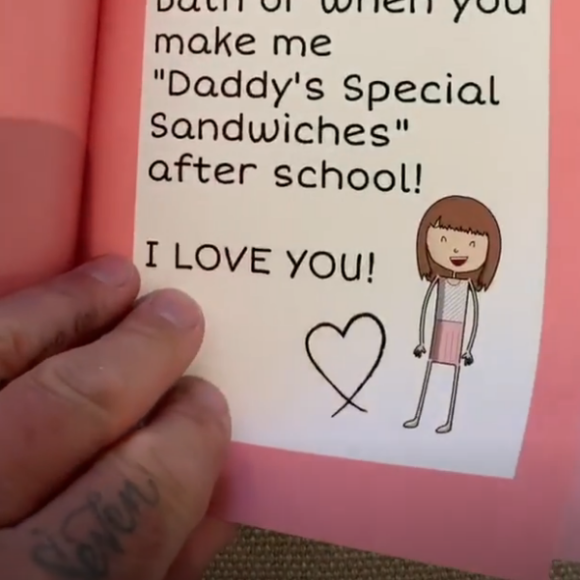 bath or when you
make me
"Daddy's Special
Sandwiches"
after school!
I LOVE YOU!
Seven